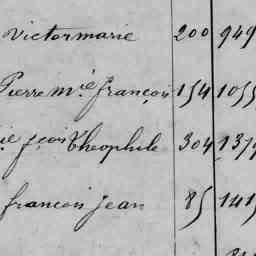 victormarie 200 949
Pierre m.ie françois 154 1055
ie jean theophile 304 1379
francois Jean 85 1415